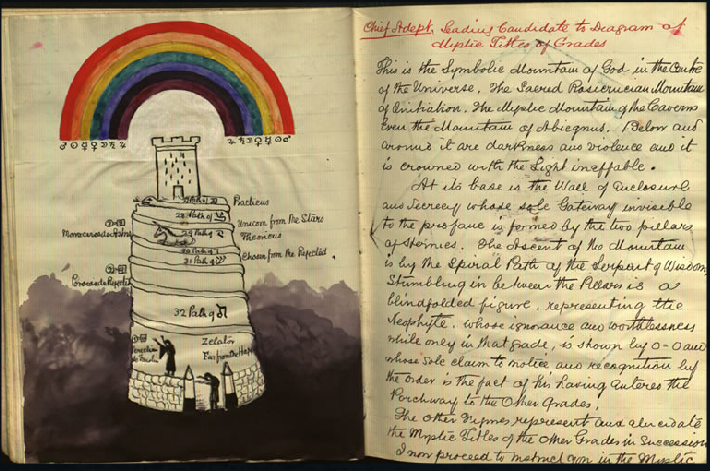 Practicus
28 Path of
Unicorn from the Stars
29 Path of
Theoricus
Monoceros de Astris
30 Path of
31 Path of
Chosen from the Rejected
32 Path of
Zelator
Chief Adept. Leading Candidate to Diagram of
Mystic Titles of Grades
This is the Symbolic Mountain of God in the Centre
of the Universe, The Sacred Rosicrucian Mountain
of Initiation, The Mystic Mountain of the Caverns
Even the Mountain of Abiegnus. Below and
around it are darkness and violence and it
is crowned with the Light ineffable.
At its base is the Wall of Enclosure
and Secrecy whose sole Gateway invisible
to the profane is formed by the two pillars
of Hermes. The Ascent of the Mountain
is by the Spiral Path of the Serpent of Wisdom
Stumbling in between the Pillars is a
blindfolded figure, representing the
Neophyte, whose ignorance and worthlessness
while only in that grade, is shown by 0-0 and
whose sole claim to notice and recognition by
the Order is the fact of his having entered the
Porchway to the Other Grades.
The other Figures represent and elucidate
the Mystic Titles of the Other Grades in Succession
I now proceed to instruct you in the Mystic